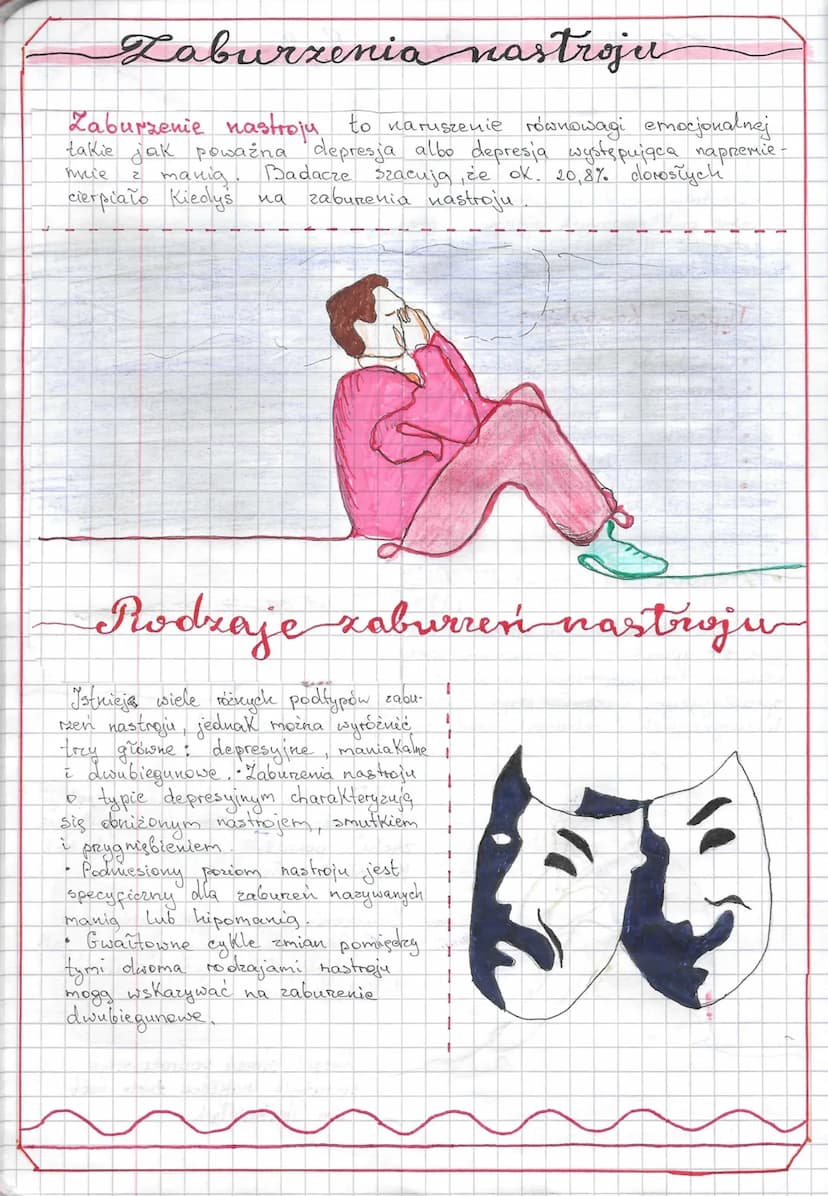 Zaburzenia nastroju
Zaburzenie nastroju to naruszenie równowagi emocjonalnej
takie jak poważna depresja albo depresja występująca naprzemie-
mnie z manią. Badacze szacują, że ok. 20,8% dorosłych
cierpiało kiedyś na zaburenia nastroju.
Rodzaje zaburzeń nastroju
Istnieją wiele różnych podtypów zabu-
rzeń nastroju, jednak można wyróżnić
trzy główne: depresyjne, maniakalne
i dwubiegunowe. • Zaburzenia nastroju
o typie depresyjnym charakteryzują
się obniżonym nastrojem, smutkiem
i przygnębieniem.
• Podniesiony poziom nastroju jest
specyficzny dla zaburzeń nazywanych
manią lub hipomanią.
• Gwałtowne cykle zmian pomiędzy
tymi dwoma rodzajami nastroju
mogą wskazywać na zaburzenie
dwubiegunowe.